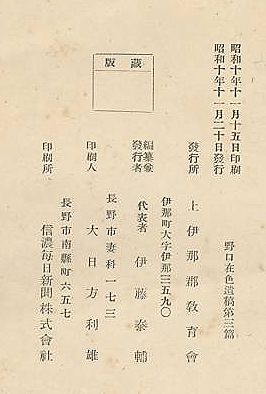 昭和十年十一月十五日印刷
昭和十年十一月二十日發行
野口在色遺稿第三篇
版藏
發行所
上伊那郡敎育會
伊那町大字伊那三五九〇
編纂兼
發行者
代表者
伊藤泰輔
長野市妻科一七三
印刷人
大日方利雄
長野市南縣町六五七
印刷所
信濃每日新聞株式會社